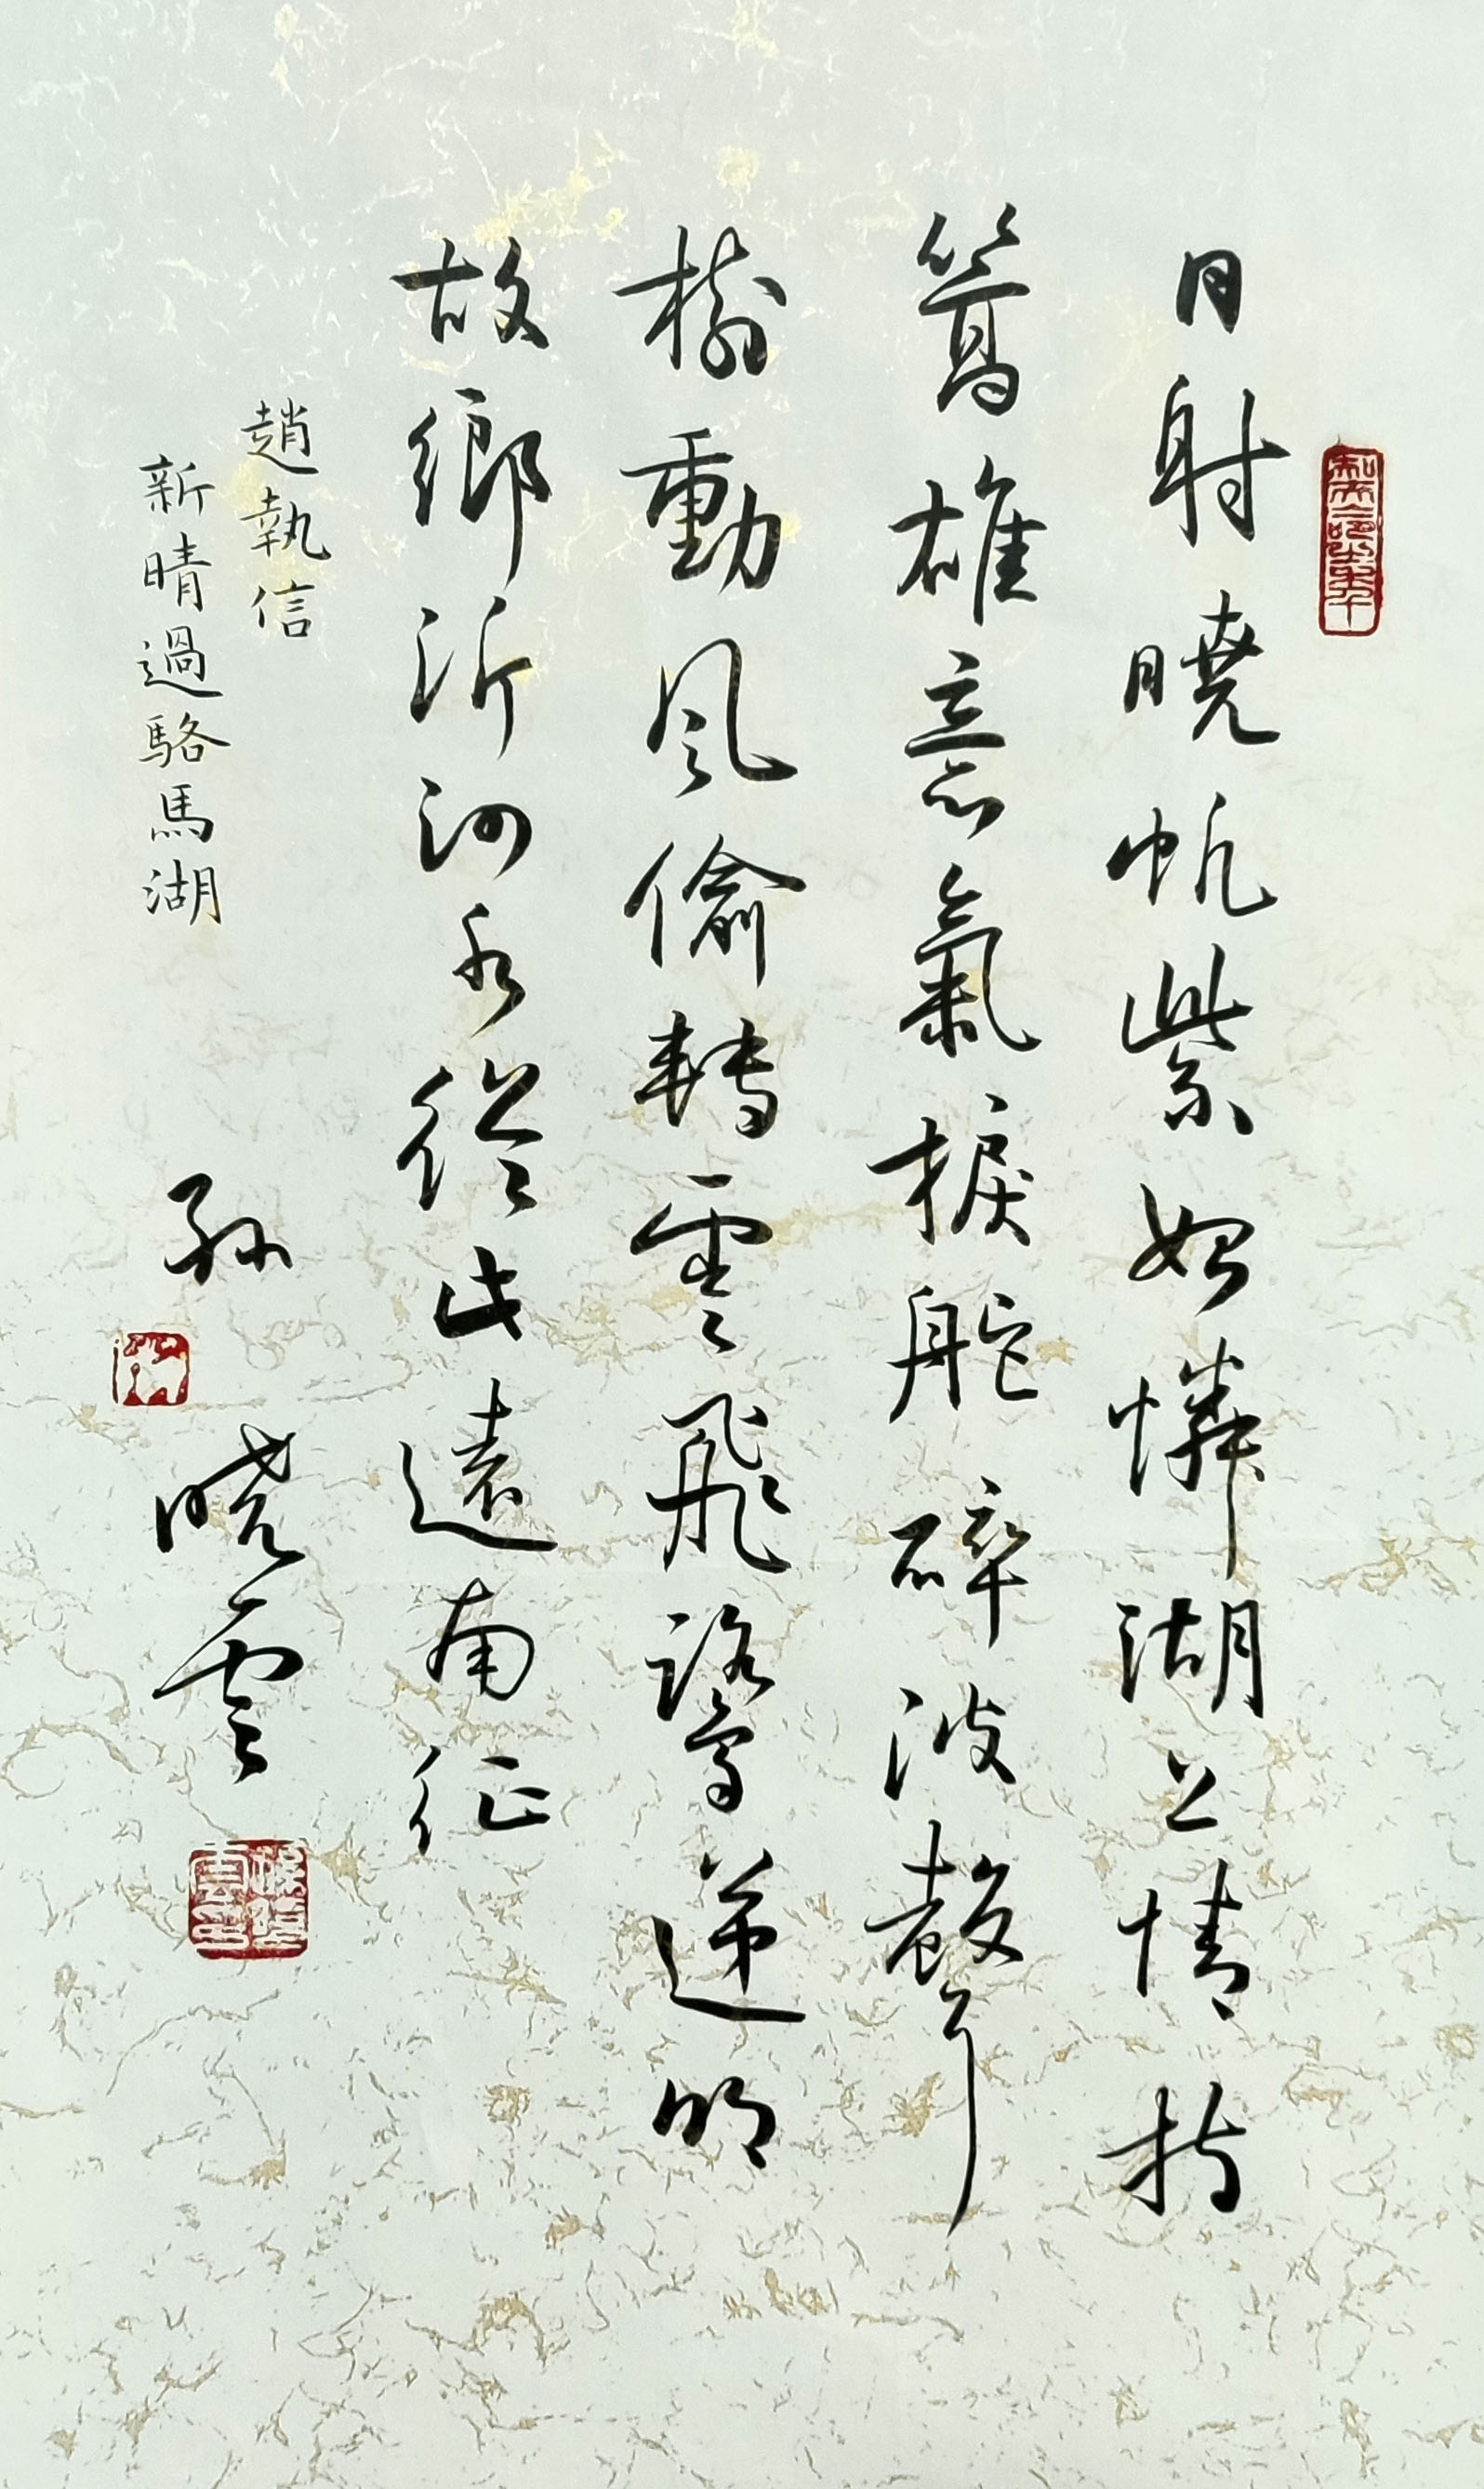 日射曉帆紫始憐湖上情持
篙雄意氣捩舵碎波聲
樹動風偷轉雲飛鷺遞明
故鄉沂河水從此遠南征
趙執信
新晴過駱馬湖
孫曉雲